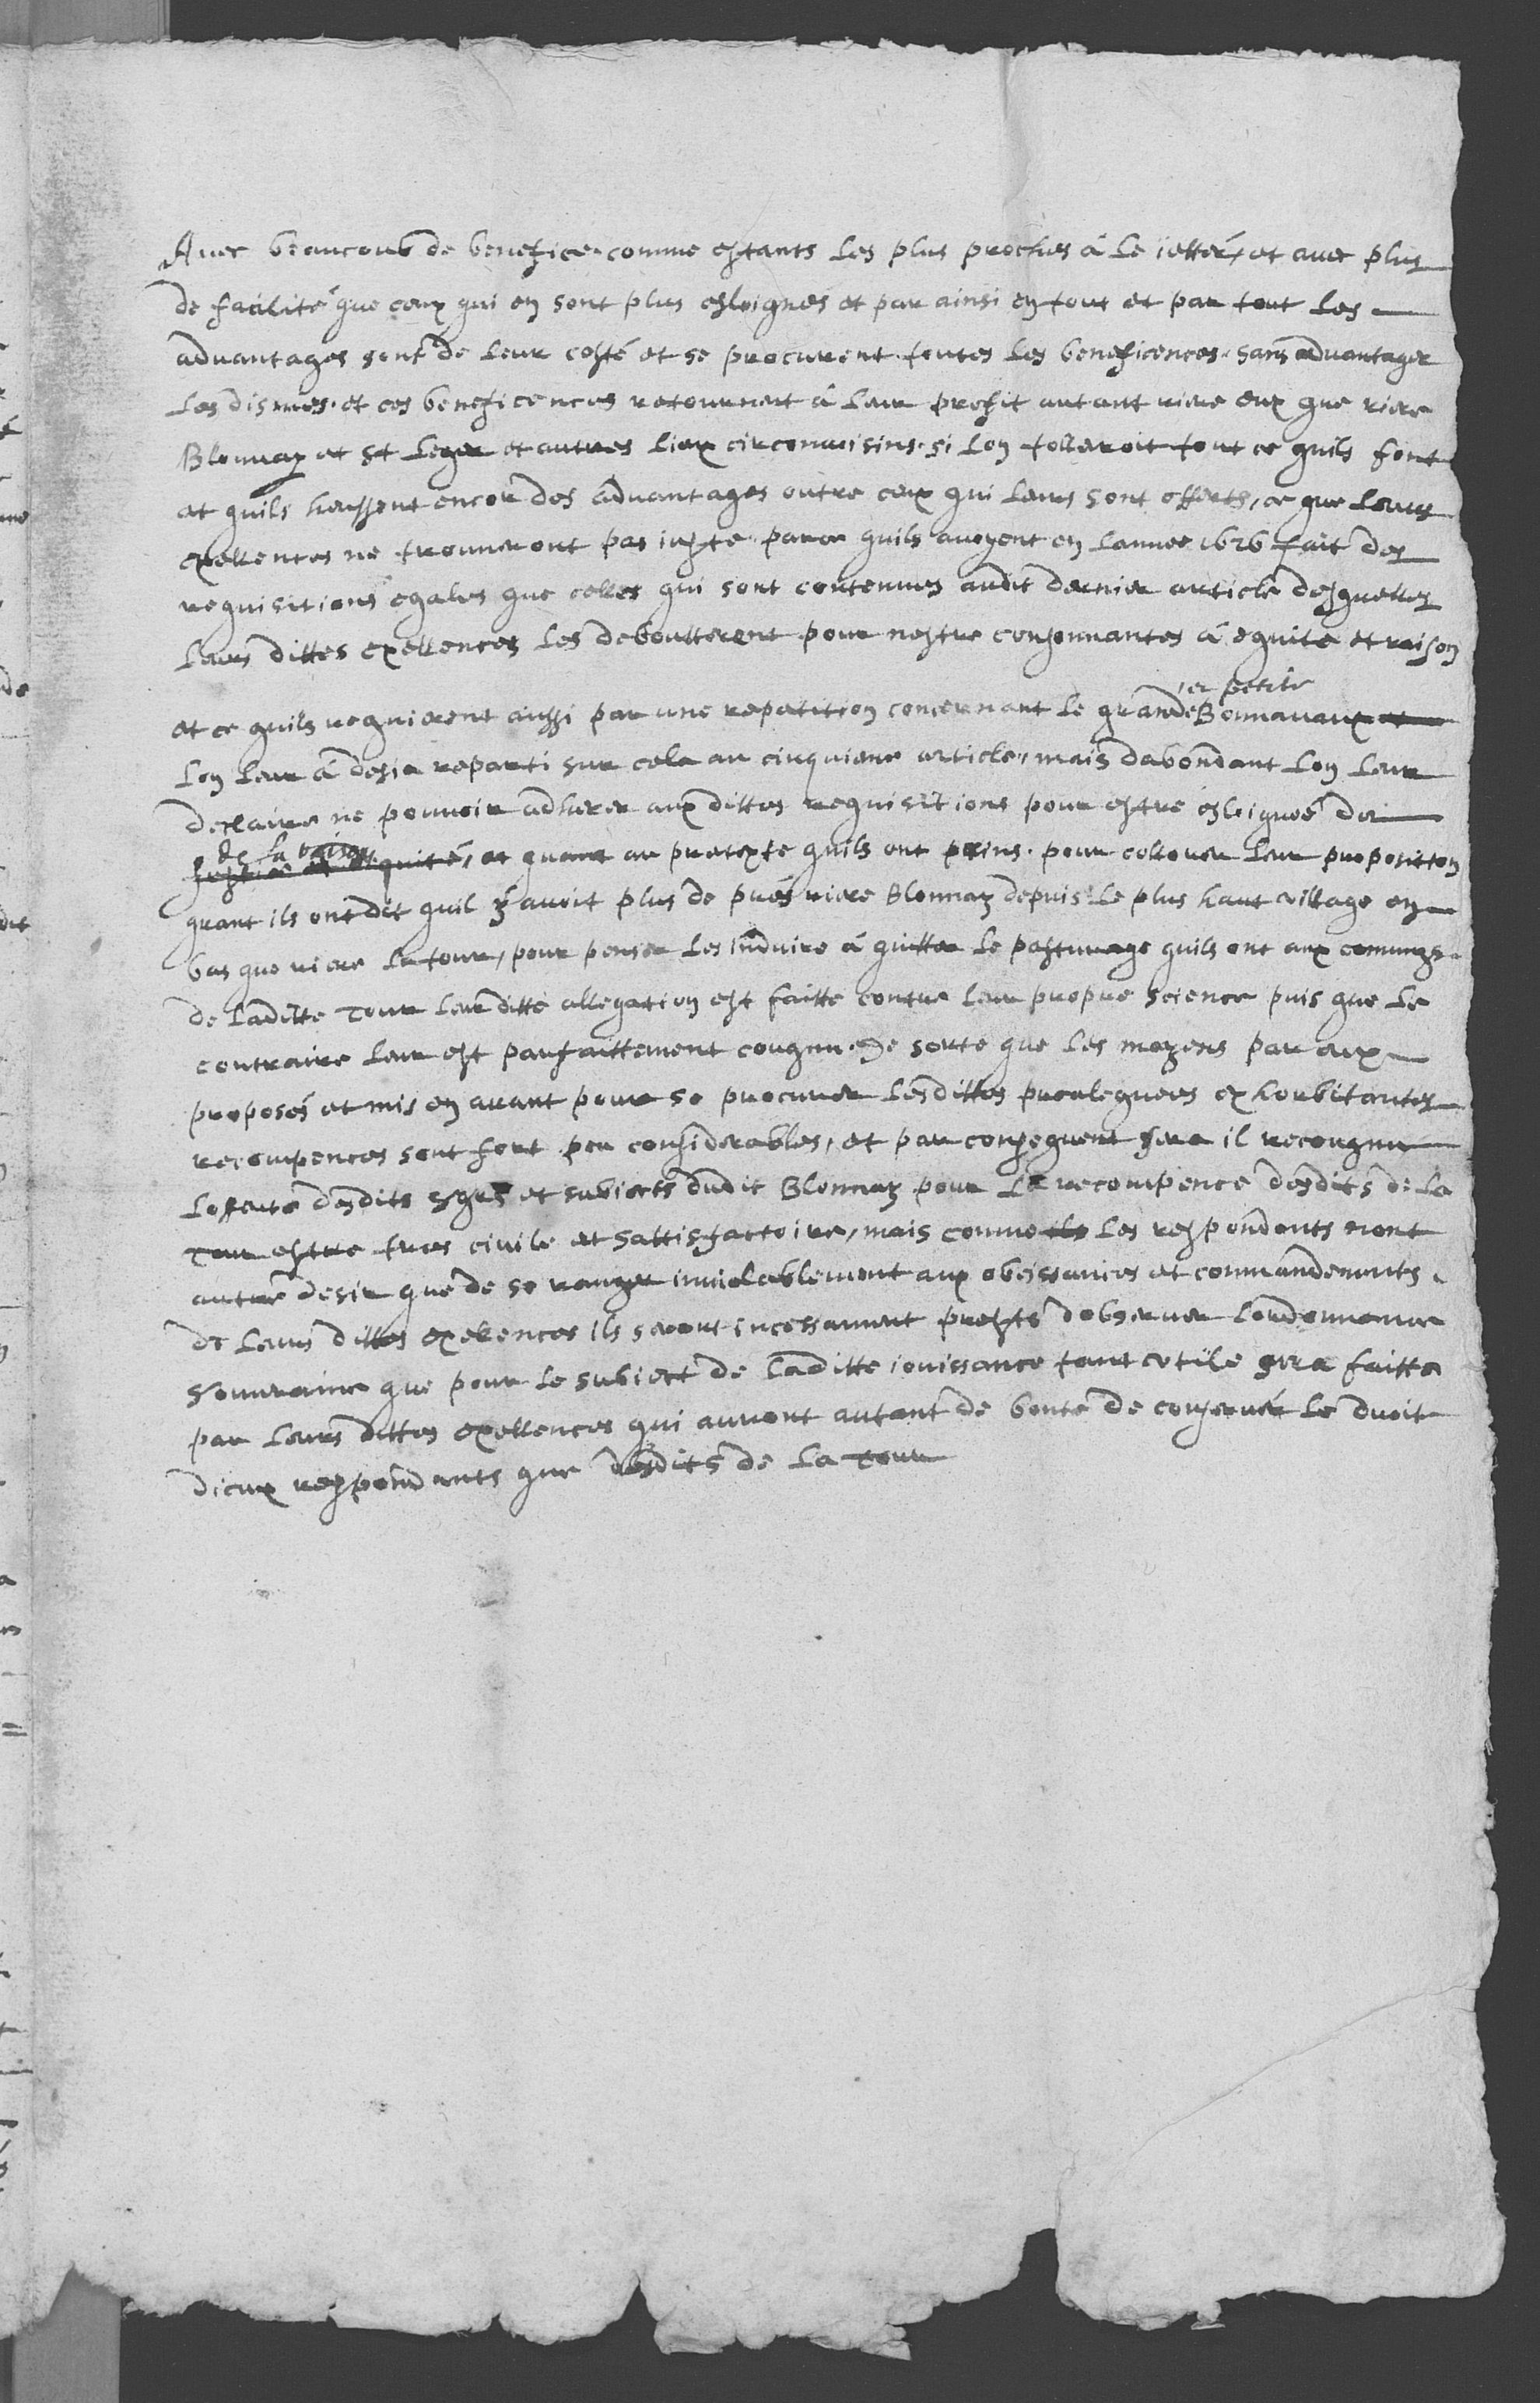 Avec beaucoub de benefice. comme estants les plus proches à le ietter, et avec plus
de facilité que ceux qui en sont plus esloignés et par ainsi en tout et par tout les
advantages sont de leur costé et se procurent toutes les beneficences. sans advantager
les dismes. et ces beneficences retournent à leur profit autant riere eux que riere
Blonnay et St Leger et autres lieux circonvoisins. si lon tolleroit tout ce quils font
et quils heussent encor des advantages outre ceux qui leurs sont offerts, ce que leurs
exellences ne trouveront pas iuste. parce quils avoyent en lannee 1626 fait des
requisitions egales que celles qui sont contenues audit dernier article desquelles
leurs dittes exellences les deboutterent pour nestre consonnantes à equité et raison
et petite
et ce quils requierent aussi par une repetition concernant le grande Bonnavaux et
lon leur à desia reparti sur cela au cinquieme article, mais dabondant lon leur
declaire ne pouvoir adherer aux dittes requisitions pour estre esloignée de
de la raison
justice et equité, et quant au pretexte quils ont prins. pour collorer leur proposition
quant ils ont dit quil y avoit plus de prés riere Blonnay depuis le plus haut village en
bas que riere la tour, pour penser les induire à quitter le pasturage quils ont aux comungs
de laditte Tour leur ditte allegation est faitte contre leur propre science puis que le
contraire leur est parfaittement cougnu. De sorte que les moyens par eux
proposés et mis en avant pour se procurer lesdittes preuleguees exhorbitantes
recompences sont fort peu considerables, et par consequent sera il recougnu
lofferte desdits Sgrs et subiects dudit Blonnay pour la recompence desdits de la
Tour estre tres civile et sattisfactoire, mais comme ils les respondants nont
autre desir que de se ranger inviolablement aux obeissances et commandements
de leurs dittes exellences ils seront incessamment prests dobserver lordonnance
souveraine que pour le subiect de laditte iouissance tant utile sera faitte
par leurs dittes exellences qui auront autant de bonté de conserver le droit
diceux respondants que desdits de la Tour